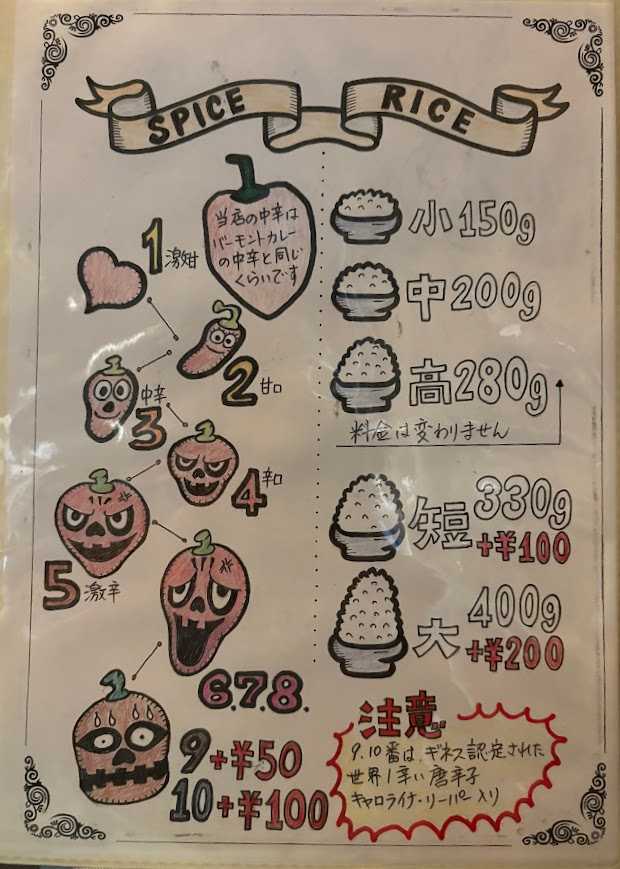 SPICE RICE
当店の中辛は
バーモントカレー
の中辛と同じ
くらいです
1 激甘
2 甘口
3 中辛
4 辛口
5 激辛
6.7.8.
9+¥50
10+¥100
小150g
中200g
高280g
料金は変わりません
短330g
+¥100
大400g
+¥200
注意
9.10番は、ギネス認定された
世界1辛い唐辛子
キャロライナ・リーパー入り